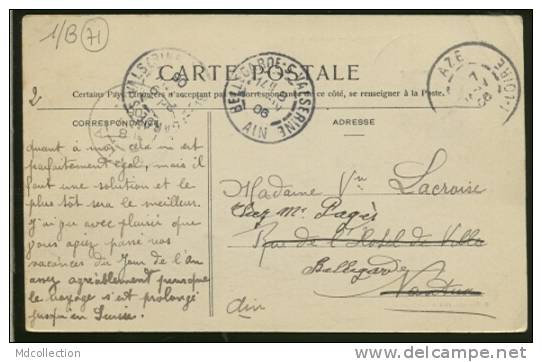 1/B 71
CARTE POSTALE
Certains Pays étrangers n'acceptant pas la correspondance de ce côté, se renseigner à la Poste.
CORRESPONDANCE
ADRESSE
BELLEGARDE-S-VALSERINE
06
AIN
AZE
LOIRE
2
quant à moi, cela m'est
parfaitement égal, mais il
faut une solution et le
plus tôt sera le meilleur.
J'ai vu avec plaisir que
vous ayiez passé vos
vacances du Jour de l'an
assez agréablement puisque
le voyage s'est prolongé
jusqu'en Suisse.
Madame Vve Lacroise
Chez Mr Pagès
Rue de l'Hôtel de Ville
Bellegarde
Nantua
Ain
Mdcollection
www.delcampe.net